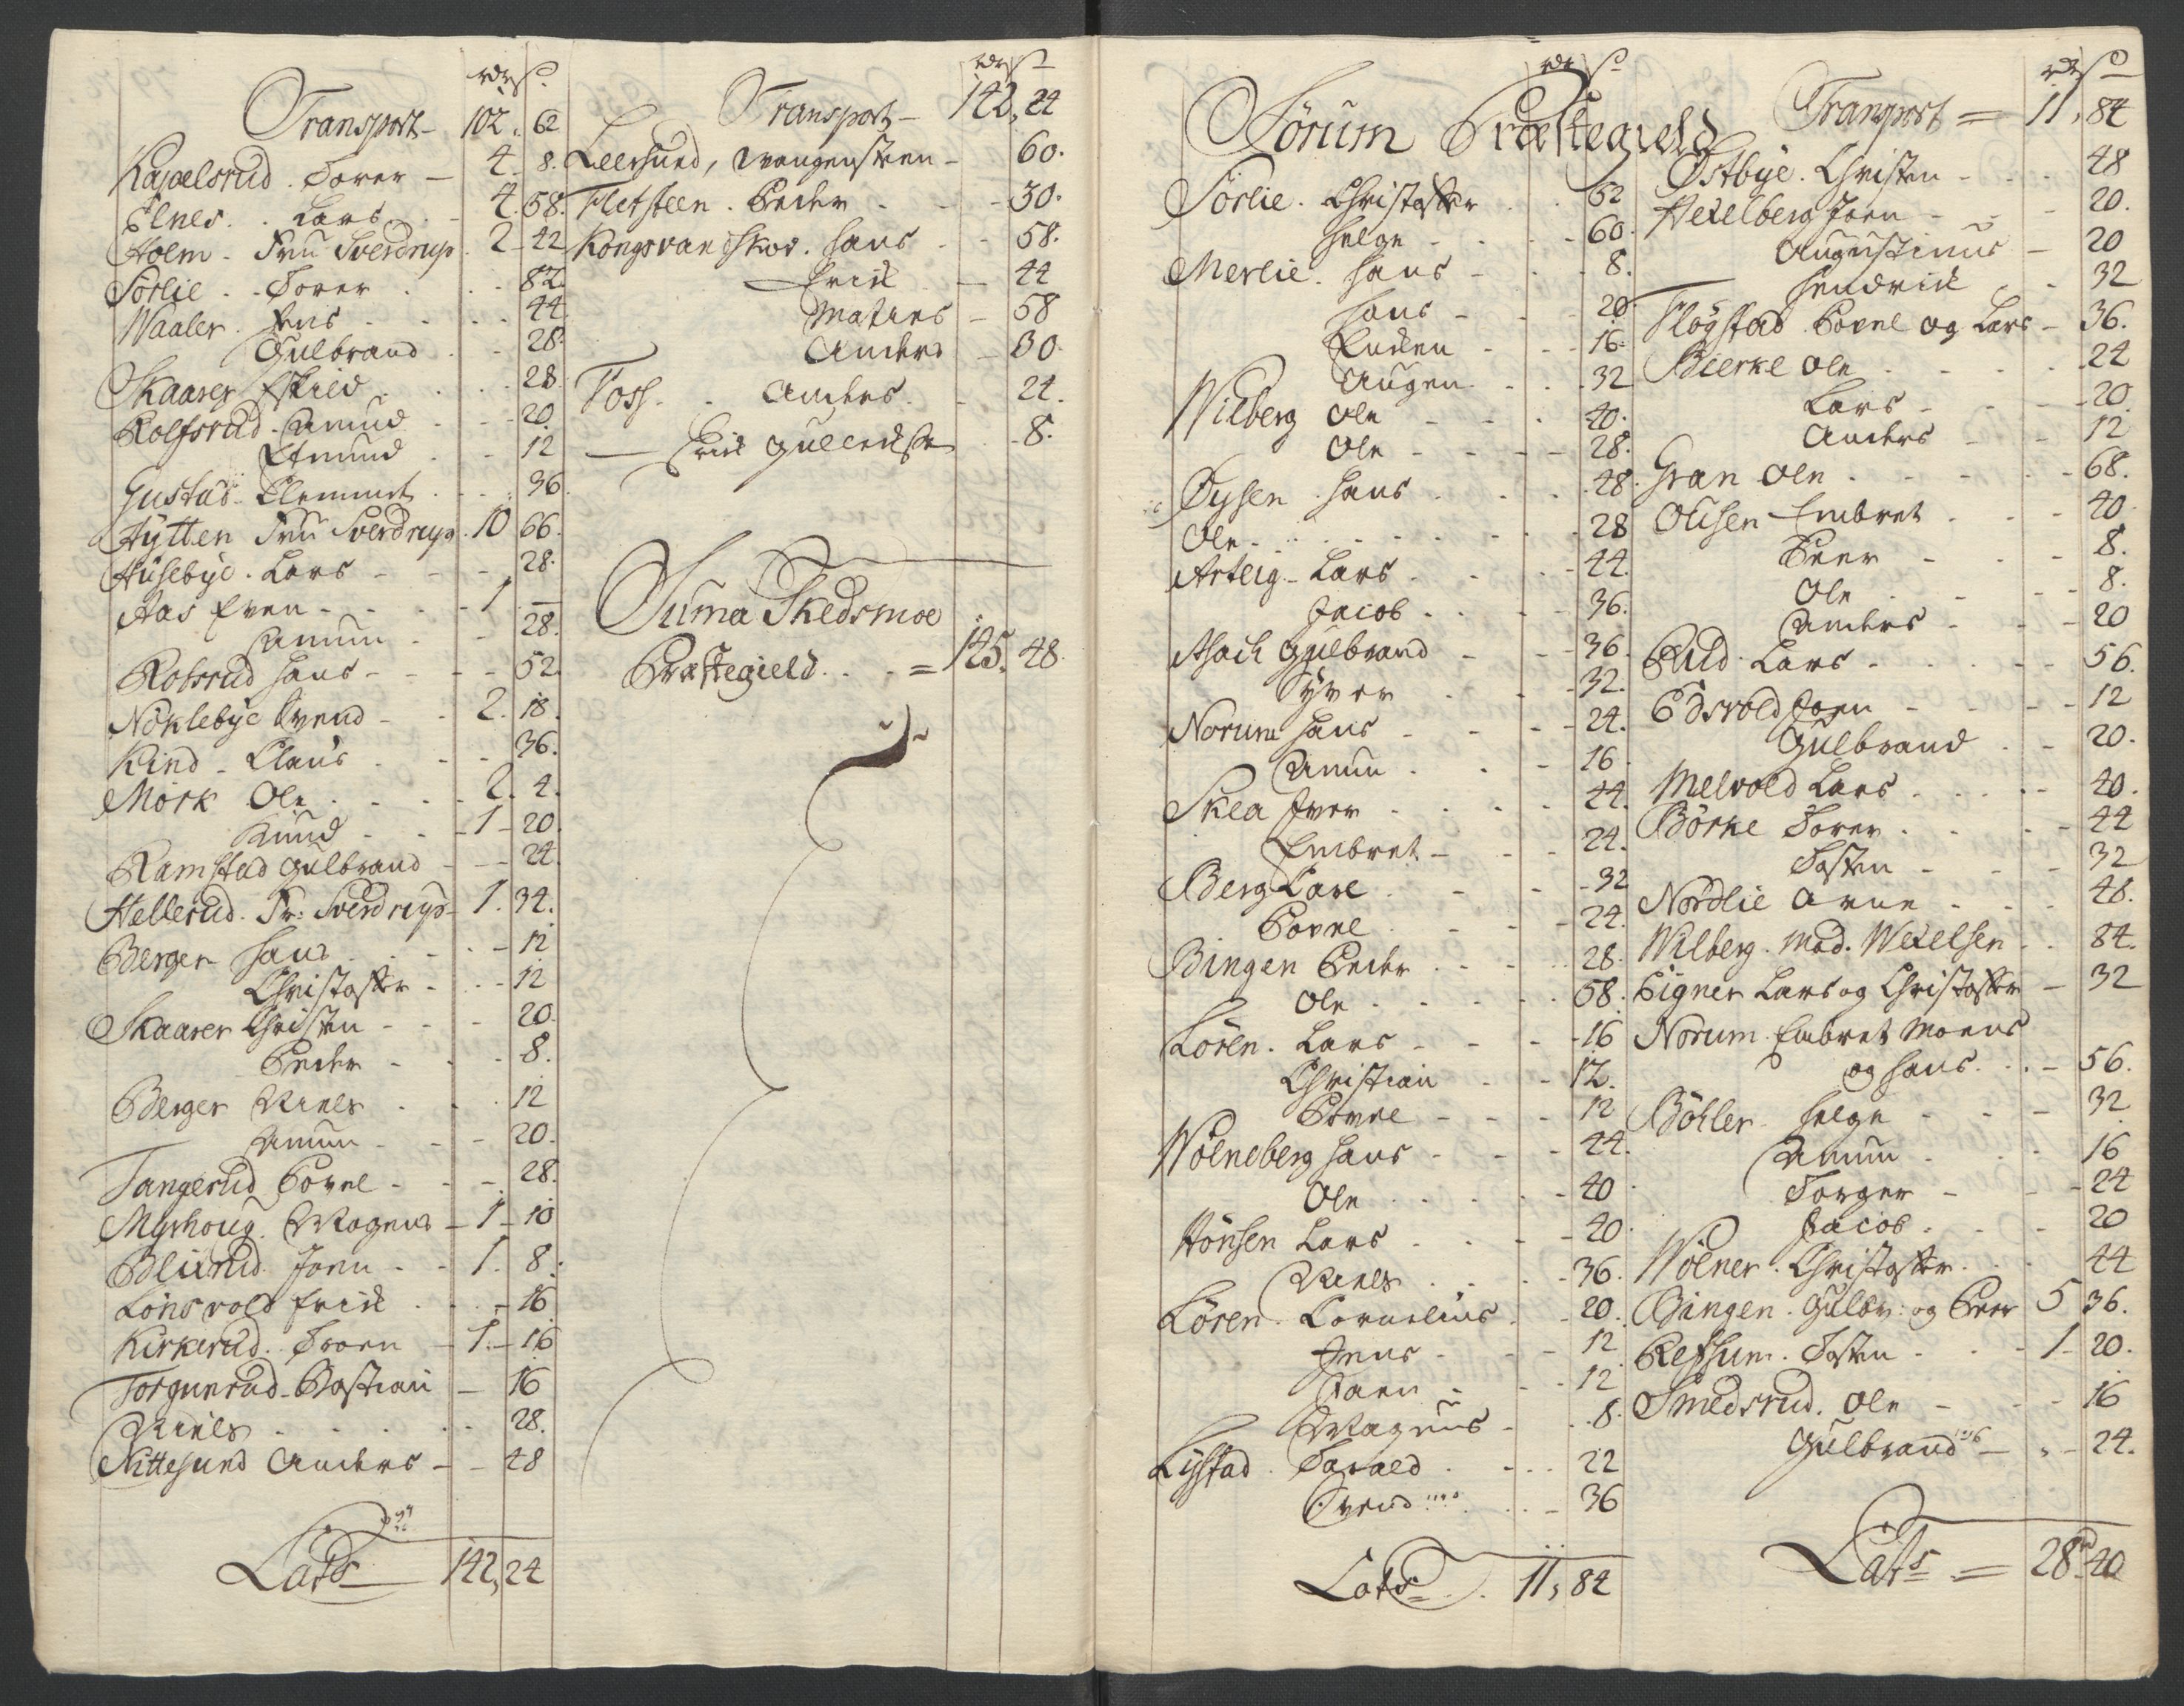 rdr s
Transport - 102. 62
Kajoelsrud. Torer - 4. 8.
Elnes. Lars - 4. 58.
Holm - Fru Sverdrup 2 - 22
Sörlie. Torer 82.
Waaler. Jens 44.
Gulbrand 28.
Skaarer Eskild 28.
Rolfsrud. Amund 20.
Etmund 12
Gustad. Clemmet 36.
Hÿtten Fru Sverdrup. 10 66.
Husebÿe. Lars - 28.
Aas Even - 1. -
Amun 28.
Robsrud Hans - 52.
Nöklebÿe Svend - 2. 18.
Kind - Claus 36.
Mörk Ole 2. 4.
Knud - 1 - 20.
Ramstad Gulbrand - 24.
Hellerud. Fr: Sverdrup - 1. 34.
Berger Hans - 12
Christoffer - 12
Skaarer Christen - 20.
Peder - 8.
Berger Niels 12
Amun - 20.
Tangerud Povel - 28.
Myrhoug. Mogens - 1 - 10
Blixrud. Joen - 1. 8.
Lönsvold Erich - 16
Kirkerud. Troen - 1. - 16
Torgunrud - Bastian - 16
Niels 28.
Nittesund Anders - 48
Lats 142, 24
rdr s
Transport - 142, 24
Leersund, Wangensteen - 60.
Fletsteen. Peder - 30.
Kongsvandskov. Hans - 58.
Erich 44
Mathes - 58
Anders - 30.
Foss. Anders. 24.
Erich Gullichsen - 8.
Suma Skedsmoe
Præstegield. = 145. 48.
rdr s
Sörum Præstegield
Sörlie. Christoffer 52
Helge - 60.
Merlie. Hans - 8.
Hans - 20
Enken - 16.
Augen. 32
Wilberg Ole - 40.
Ole - 28.
Öysen. Hans 48.
Ole. 28
Arteig - Lars 44.
Jacob. 36.
Asach Gulbrand - 36.
Syver 32.
Norum Hans - 24.
Amun. 16
Skea Iver - 44.
Embret - 24.
Berg Lars 32
Povel 24.
Bingen Peder. 28.
Ole - 58.
Lören. Lars - 16
Christian - 12.
Povel - 12
Wölneberg Hans - 44.
Ole - 40
Hönsen Lars - 20.
Niels - 36.
Lören. Cornelius 20.
Jens - 12
Joen - 12
Magnus - 8.
Lystad. Torald 22
Svend - 36
Lats. 11, 84
rdr s
Transport = 11, 84
Östbÿe. Christen - 48
Hexelberg Joen - 20.
Augustinus - 20
Hendrich 32
Flögstad Povel og Lars - 36.
Bierke Ole 24
Lars - 20.
Anders - 12
Gran Ole - 68.
Olisen Embret 40
Peer - 8.
Ole - 8.
Anders - 20
Rud Lars - 56.
Edsvold Joen - 12
Gulbrand - 20.
Melvold Lars 40.
Börke Torer - 44
Tosten - 32
Nordlie Arne 48.
Wilberg. Mad. Wexelsen 84.
Eigner Lars og Christoffer - 32
Norum. Embret Moens
og Hans. - 56.
Böhler Helge - 32
Amun - 16
Torger - 24
Jacob. 20
Wölner. Christoffer. 44
Bingen. Gulbr: og Peer 5 36.
Refsum. Tosten - 1 - 20.
Smedsrud. Ole - 16
Gulbrand - 24.
Lats = 28. 40